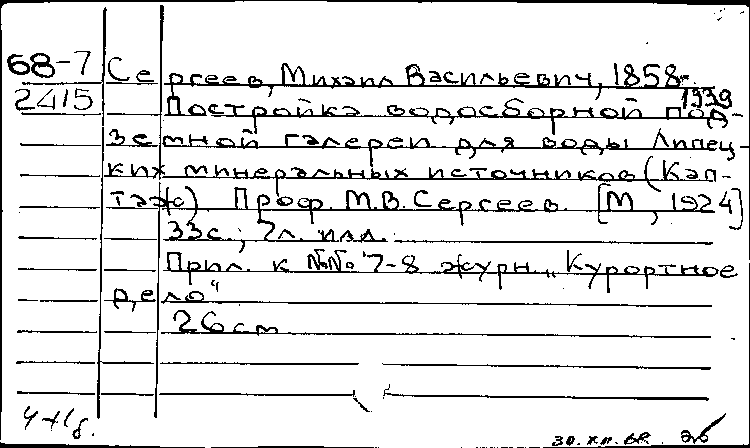 68-7
2415
Сергеев, Михаил Васильевич, 1858-
1939
Постройка водосборной под-
земной галереи для воды Липец-
ких минеральных источников (Кап-
таж). Проф. М.В. Сергеев. [М, 1924]
33с.; 7л. илл.
Прил. к №№ 7-8 журн. „Курортное
дело“
26 см
30.XII.68.